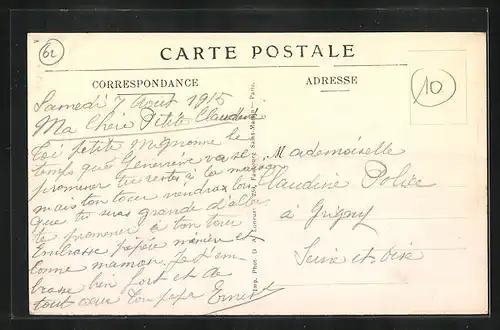 62
CARTE POSTALE
10
CORRESPONDANCE
ADRESSE
Samedi 7 Aout 1915
Ma Chère Petite Claudine
Toi petite mignonne le
temps que Geneviève va se
promener tu reste à la maison
mais ton tour viendras lors
que tu seras grande d'aller
te promener à ton tour
Embrasse pépère mémère et
bonne maman. Je t'em-
brasse bien fort et de
tout cœur Ton papa Ernest
Mademoiselle
Claudine
à Grigny
Seine et Oise
Imp. Phot. D. A. Faubourg Saint- Paris.